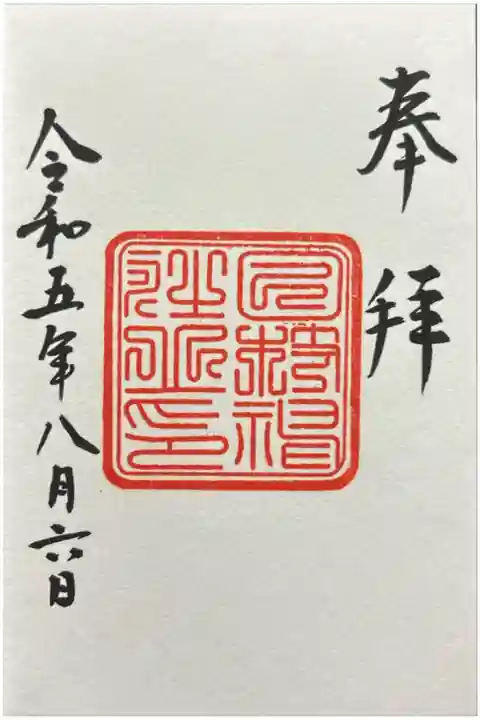 奉拝
令和五年八月六日